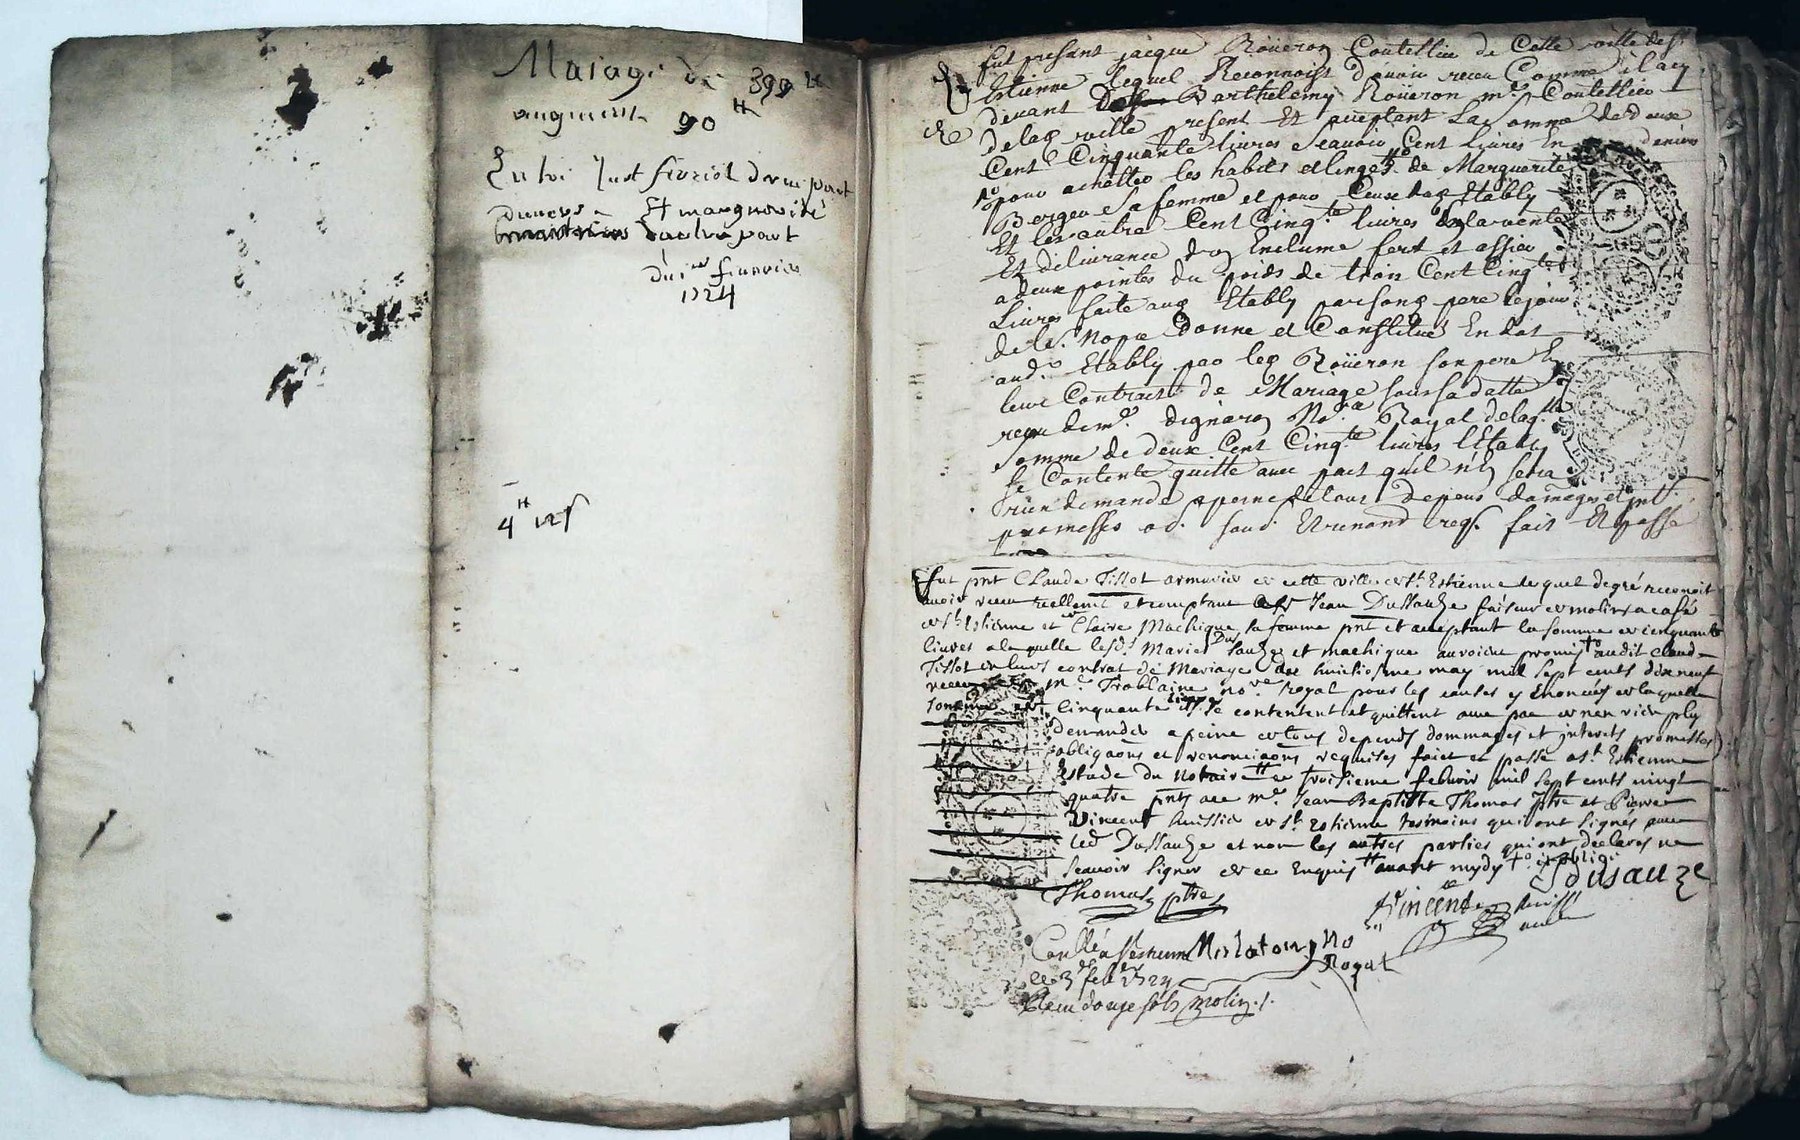 Mariage de 399 ll
augment 90 ll
Entre Just
Et marguerite
d'autre part
du 1er feuvrier
1724
4 ll
fut present jacque Roüeron Coutellier de Cette ville de St
Estienne lequel Reconnoist d'avoir receu Comme il a cy
devant de Barthelemy Roüeron me Coutellier
de lad ville present Et acceptant La somme de deux
Cent Cinquante livres scavoir Cent livres En deniers
pour achetter les habits et linges de Marguerite
Berger sa femme et pour Ceux dud Etably
Et les autre Cent Cinqte livres En la vente
Et delivrance d'un Enclume fort et assier
a deux pointes du poids de trois Cent Cinqte
Livres faite aud Etably par sond pere le jour
de ses Nopce donne et Constitué En dot
aud. Etably par led Roüeron son pere En
leur Contrait de Mariage sous sa datte
receu de me. dignaron Nore Royal de lad.
somme de deux Cent Cinqte livres l'Etably
se Contente quitte avec pact qu'il n'En sera
Rien demandé a peine de tous depens domages et
promesses ob. soub. Et renond reqs. fait Et passé
fut pnt Claude Tissot armurier de cette ville de St. Estienne lequel degré reconoit
avoir receu reellemt et comptant de sr Jean Dussauze faiseur de molins a café
de St. Estienne et de Claire Machique sa femme pnt et aceptant la somme de cinquante
livres a laquelle lesd. Mariés Dussauze et machique auroient promis audit Claude
Tissot en leurs contrat de Mariage du huitiesme may mil sept cents dix neuf
receu me. Trablaine nore royal pour les causes y Enoncées de laquelle
somme de cinquante livres se contentent et quittent avec pac de n'en rien plus
demander a peine de tous depends dommages et interets promesses
obligaons et renonciaons requises faict et passé a St. Estienne
Estude du notaire ce troisieme febvrier mil sept cents vingt
quatre pnts avec me. Jean Baptiste Thomas ptre et Pierre
Vincent huissier de St. Estienne tesmoins qui ont signés avec
led Dussauze et non les autres parties qui ont declarés ne
scavoir signer de ce Enquis avant mydy
J dusauze
Thomas ptre
Vincent
Conllé a St estienne
No Royal
le 3 febr 1724
Receu douze sols molin